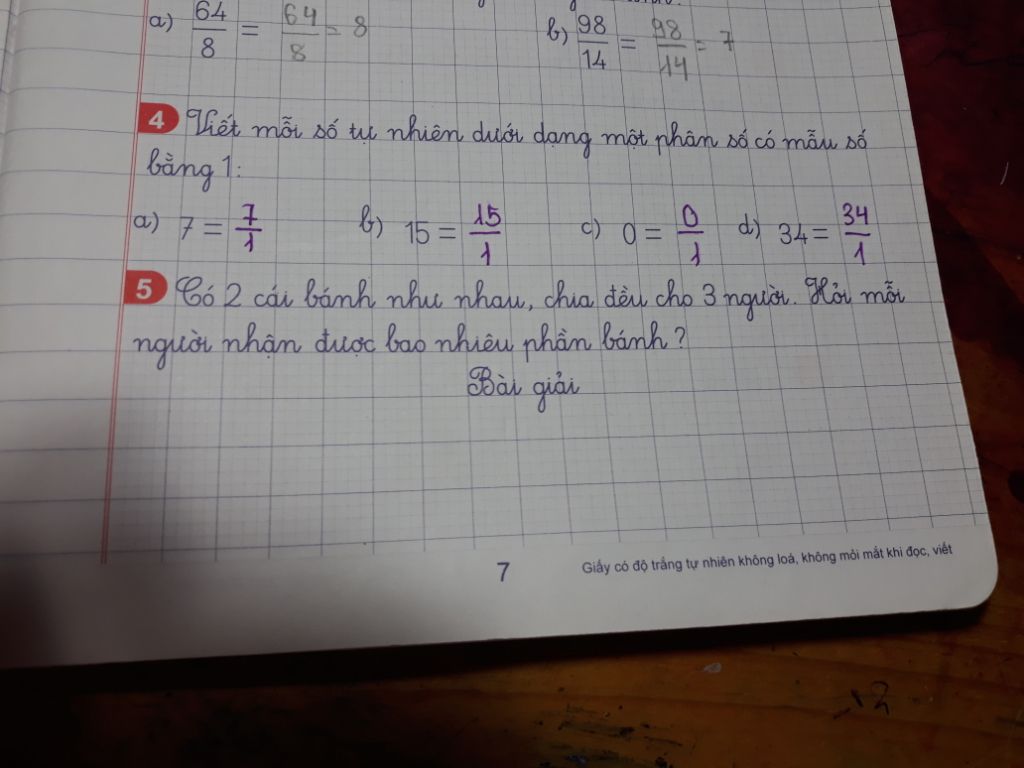 a) 64/8 = 64/8 = 8 b) 98/14 = 98/14 = 7
4 Viết mỗi số tự nhiên dưới dạng một phân số có mẫu số
bằng 1:
a) 7 = 7/1 b) 15 = 15/1 c) 0 = 0/1 d) 34 = 34/1
5 Có 2 cái bánh như nhau, chia đều cho 3 người. Hỏi mỗi
người nhận được bao nhiêu phần bánh?
Bài giải
7 Giấy có độ trắng tự nhiên không loá, không mỏi mắt khi đọc, viết